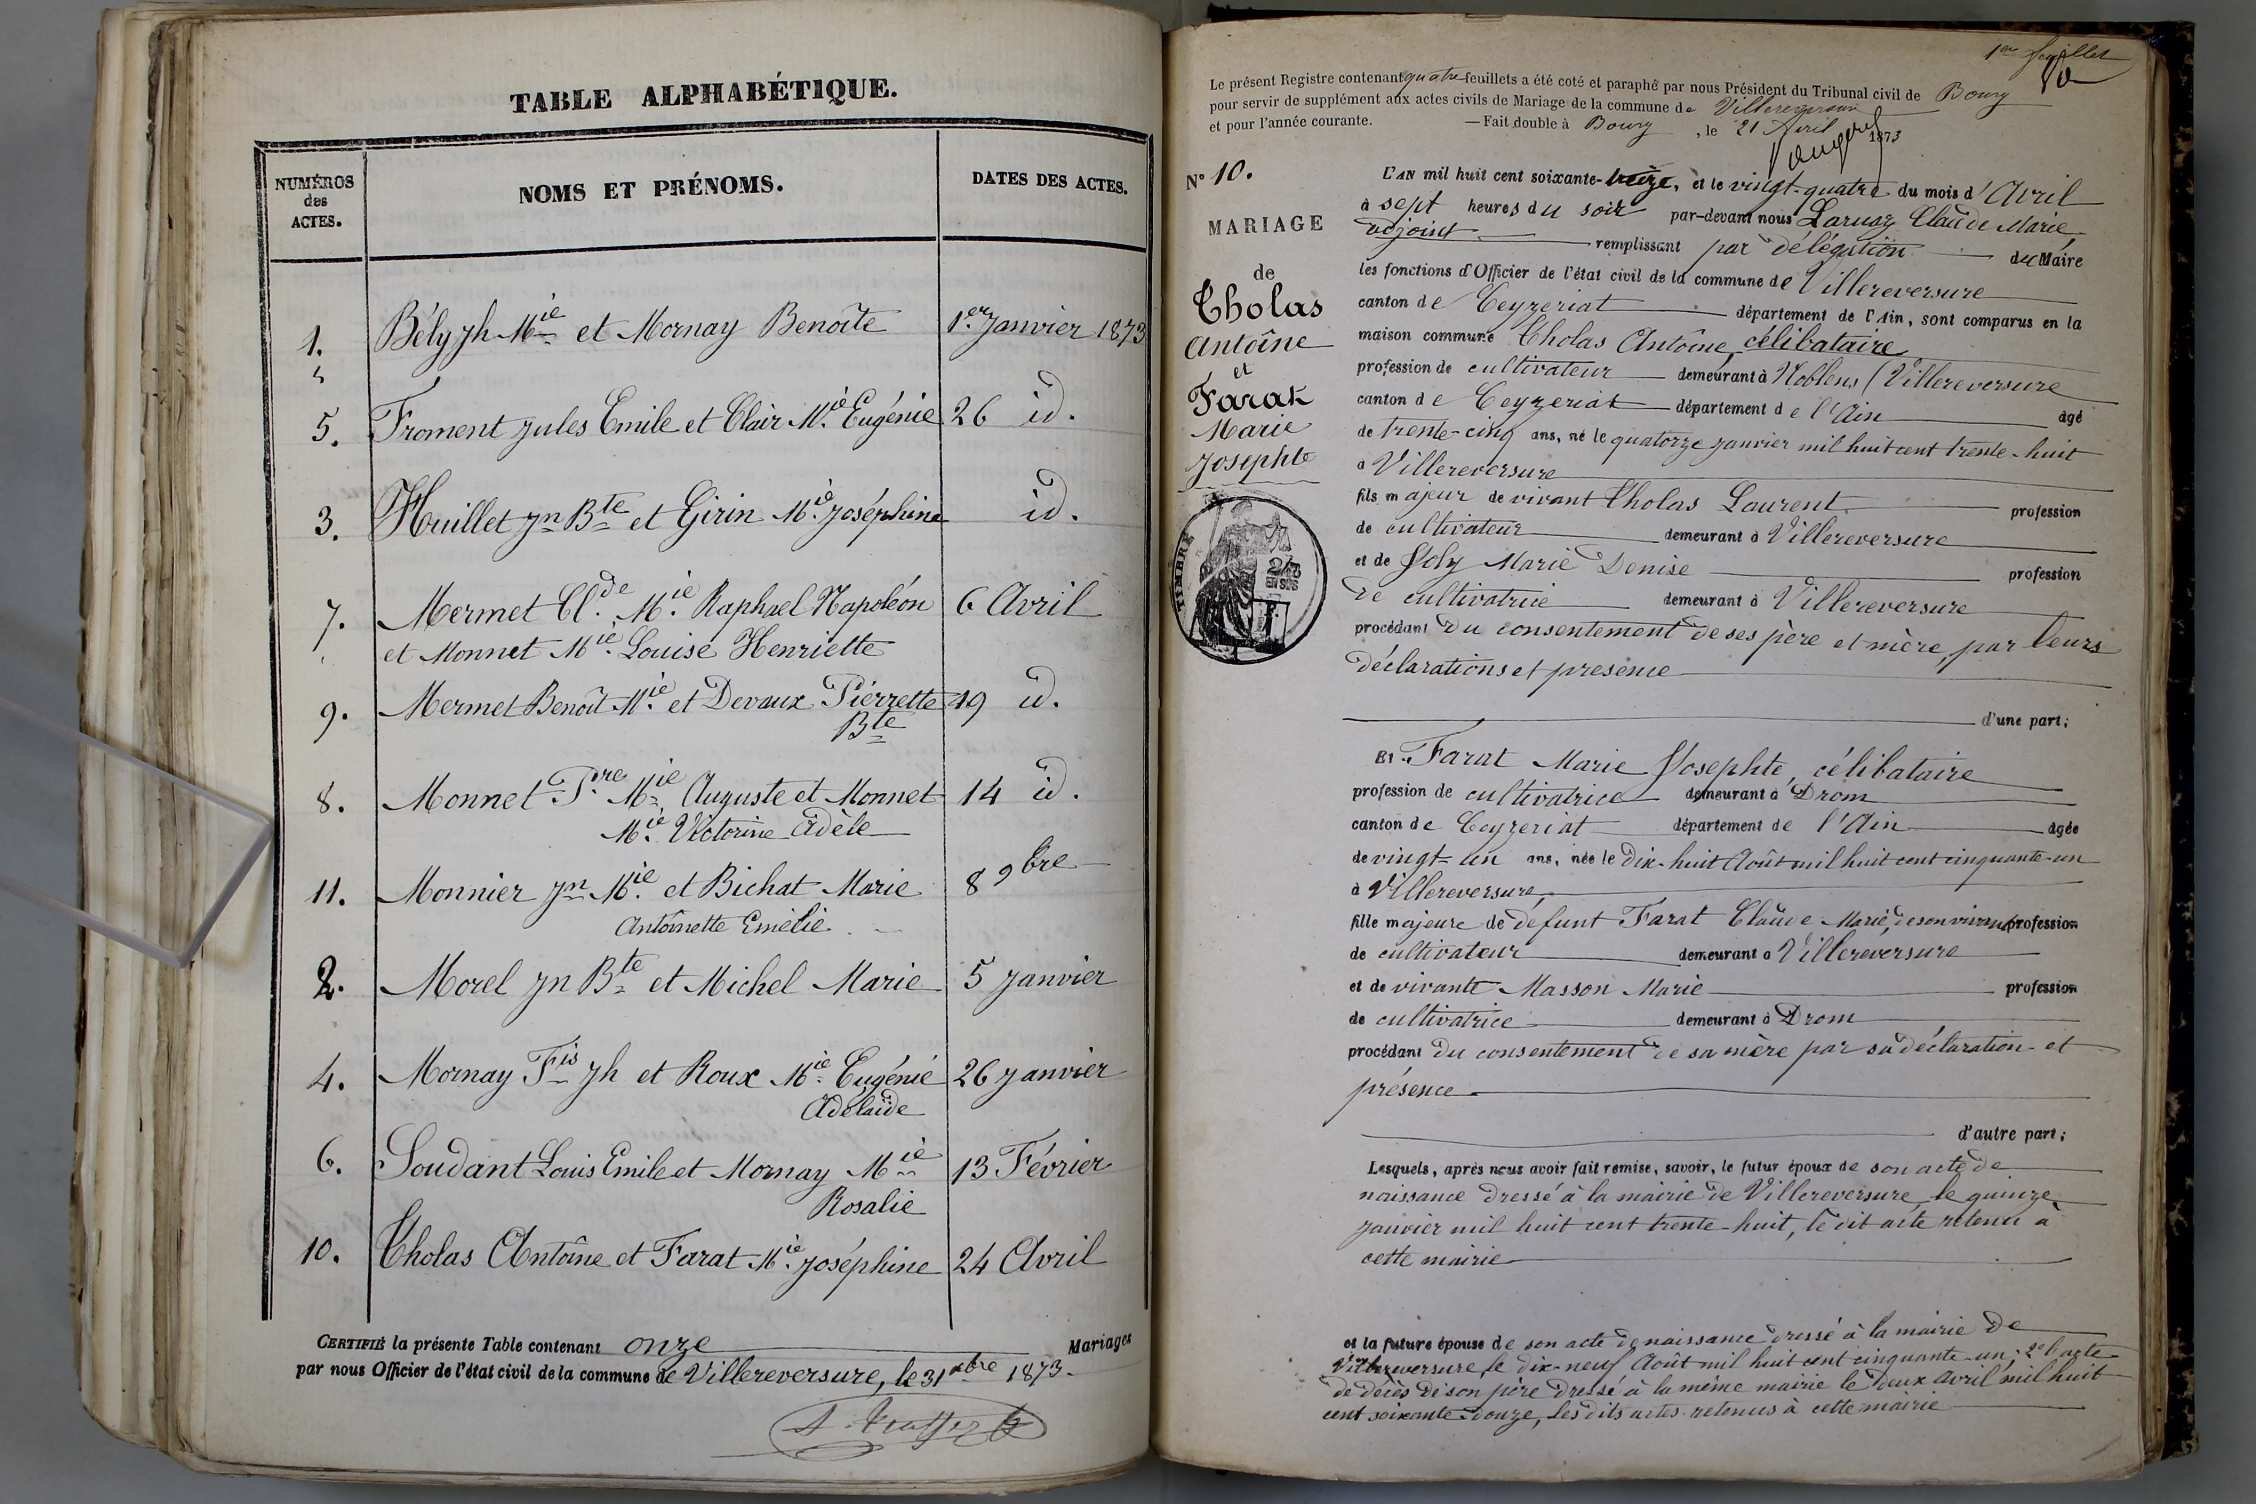 TABLE ALPHABÉTIQUE.
NUMÉROS des ACTES.
NOMS ET PRÉNOMS.
DATES DES ACTES.
1. Bély Jh Mie et Mornay Benoîte 1er Janvier 1873
5. Froment Jules Emile et Clair Mie Eugénie 26 id.
3. Huillet Jn Bte et Girin Mie Joséphine id.
7. Mermet Cl.de Mie Raphael Napoléon 6 Avril
et Monnet Mie Louise Henriette
9. Mermet Benoît Mie et Devaux Pierrette 19 id.
Bte
8. Monnet Pre Mie Auguste et Monnet 14 id.
Mie Victorine Adèle
11. Monnier Jn Mie et Bichat Marie 8 9bre
Antoînette Emélie
2. Morel Jn Bte et Michel Marie 5 Janvier
4. Mornay Fis Jh et Roux Mie Eugénie 26 Janvier
Adélaïde
6. Soudant Louis Emile et Mornay Mie 13 Février
Rosalie
10. Cholas Antoîne et Farat Mie Joséphine 24 Avril
CERTIFIÉ la présente Table contenant onze Mariages
par nous Officier de l'état civil de la commune de Villereversure, le 31 xbre 1873.
1er feuillet
Le présent Registre contenant quatre feuillets a été coté et paraphé par nous Président du Tribunal civil de Bourg
pour servir de supplément aux actes civils de Mariage de la commune de Villereversure
et pour l'année courante. — Fait double à Bourg, le 21 Avril 1873
N° 10.
MARIAGE
de
Cholas
Antoîne
et
Farat
Marie
Josephte
TIMBRE
2/10
EN SUS
L'AN mil huit cent soixante-treize, et le vingt-quatre du mois d'Avril
à sept heures du soir par-devant nous Laruaz Claude Marie
adjoint remplissant par délégation du Maire
les fonctions d'Officier de l'état civil de la commune de Villereversure
canton de Ceyzeriat département de l'Ain, sont comparus en la
maison commune Cholas Antoîne, célibataire
profession de cultivateur demeurant à Noblens (Villereversure
canton de Ceyzeriat département de l'Ain âgé
de trente-cinq ans, né le quatorze janvier mil huit cent trente-huit
à Villereversure
fils majeur de vivant Cholas Laurent profession
de cultivateur demeurant à Villereversure
et de Joly Marie Denise profession
de cultivatrice demeurant à Villereversure
procédant du consentement de ses père et mère, par leurs
déclarations et présence
d'une part;
ET Farat Marie Josephte, célibataire
profession de cultivatrice demeurant à Drom
canton de Ceyzeriat département de l'Ain âgée
de vingt-un ans, née le dix-huit Août mil huit cent cinquante-un
à Villereversure,
fille majeure de défunt Farat Claude Marie, de son vivant profession
de cultivateur demeurant à Villereversure
et de vivante Masson Marie profession
de cultivatrice demeurant à Drom
procédant du consentement de sa mère par sa déclaration et
présence
d'autre part;
Lesquels, après nous avoir fait remise, savoir, le futur époux de son acte de
naissance dressé à la mairie de Villereversure le quinze
janvier mil huit cent trente-huit, le dit acte retenu à
cette mairie
et la future épouse de son acte de naissance dressé à la mairie de
Villereversure le dix-neuf Août mil huit cent cinquante-un; 2° l'acte
de décès de son père dressé à la même mairie le deux avril mil huit
cent soixante-douze, les dits actes retenus à cette mairie